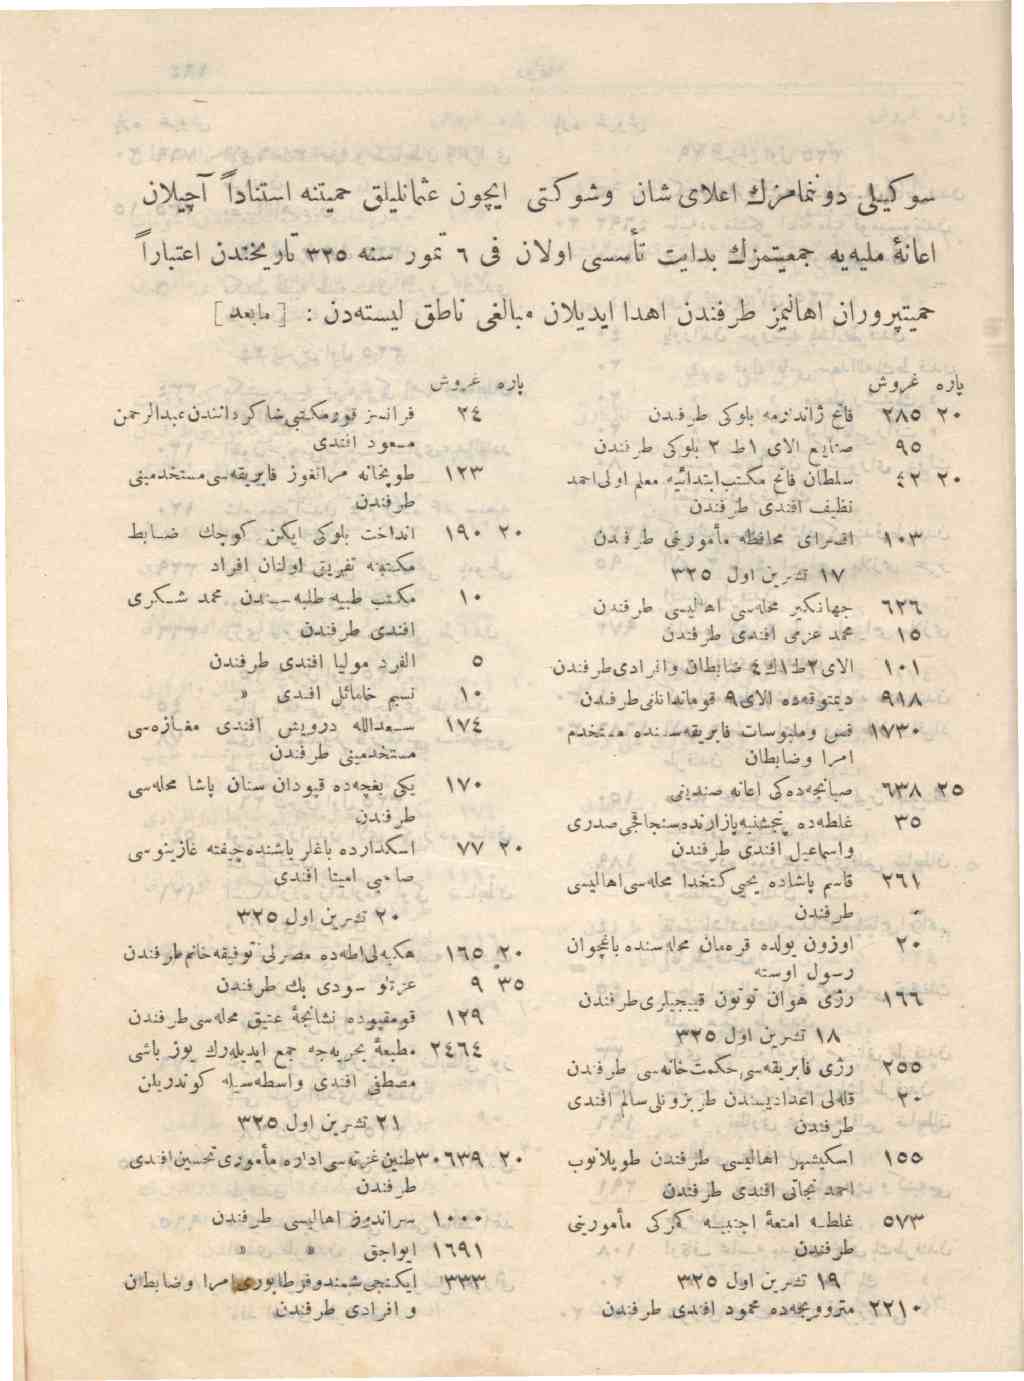 سوكيلی دونمامزك اعلای شان وشوكتی ايچون عثمانليلق حميتنه استناداً آچيلان
اعانهٔ مليه‌يه جمعيتمزك بدايت تأسسی اولان فی ٦ تموز سنه ٣٢٥ تاريخندن اعتباراً
حميتپروران اهاليمز طرفندن اهدا ايديلان مبالغی ناطق ليسته‌دن : [ مابعد ]
پاره غروش
٢٠ ٢٨٥ فاتح ژاندارمه بلوكی طرفندن
٩٥ صنايع الای ١ ط ٢ بلوكی طرفندن
٢٠ ٤٢ سلطان فاتح مكتب ابتدائيه معلم اولی احمد
نظيف افندی طرفندن
١٠٣ اقسرای محافظه مأمورينی طرفندن
١٧ تشرين اول ٣٢٥
٦٢٦ جهانكير محله‌سی اهاليسی طرفندن
١٥ محمد عزمی افندی طرفندن
١٠١ الای ٢ ط ١ ك ٤ ضابطان وافرادی طرفندن
٩١٨ ديمتوقه‌ده الای ٩ قوماندانلغی طرفندن
١٧٣٠ فس وملبوسات فابريقه‌سنده مستخدم
امرا وضابطان
٢٥ ٦٣٨ صبانجه‌ده‌كی اعانه صنديغی
٣٥ غلطه‌ده پنجشنبه پازارنده سنجاقجی صدری
واسماعيل افندی طرفندن
٢٦١ قاسم پاشاده يحيی كتخدا محله‌سی اهاليسی
طرفندن
٢٠ اوزون يولده قره‌مان محله‌سنده باغچوان
رسول اوسته
١٦٦ رژی هوان توتون قييجيلری طرفندن
١٨ تشرين اول ٣٢٥
٢٥٥ رژی فابريقه‌سی حكمت خانه‌سی طرفندن
٢٠ قله‌لی اعداديسندن طربزونلی سالم افندی
طرفندن
١٥٥ اسكيشهر اهاليسی طرفندن طوپلانوب
احمد نجاتی افندی طرفندن
٥٧٣ غلطه امتعهٔ اجنبيه كمركی مأمورينی
طرفندن
١٩ تشرين اول ٣٢٥
٢٢١٠ متروويچه‌ده محمود افندی طرفندن
پاره غروش
٢٤ فرانسز قور مكتبی شاكردانندن عبدالرحمن
مسعود افندی
١٢٣ طوپخانه مرانغوز فابريقه‌سی مستخدمينی
طرفندن
٢٠ ١٩٠ انداخت بلوكی ايكن كوچك ضابط
مكتبنه تفريق اولنان افراد
١٠ مكتب طبيه طلبه‌سندن محمد شكری
افندی طرفندن
٥ الفرد موليا افندی طرفندن
١٠ نسيم خامائل افندی »
١٧٤ سعدالله درويش افندی مغازه‌سی
مستخدمينی طرفندن
١٧٠ يكی بغچه‌ده قپودان سنان پاشا محله‌سی
طرفندن
٢٠ ٧٧ اسكدارده باغلر باشنده چيفته غازينوسی
صاحبی امينتا افندی
٢٠ تشرين اول ٣٢٥
٢٠ ١٦٥ هكبه‌لی اطه‌ده مصرلی توفيقه خانم طرفندن
٣٥ ٩ عزتلو سودی بك طرفندن
١٢٩ قومقپوده نشانجهٔ عتيق محله‌سی طرفندن
٢٤٦٤ مطبعهٔ بحريه‌جه جمع ايديله‌رك يوز باشی
مصطفی افندی واسطه‌سيله كوندريلن
٢١ تشرين اول ٣٢٥
٢٠ ٣٠٦٣٩ طنين غزته‌سی اداره مأموری تحسين افندی
طرفندن
١٠٠٠ سراندوز اهاليسی طرفندن
١٦٩١ ايواجق » »
٣٣٣ ايكنجی شمندوفر طابوری امرا وضابطان
و افرادی طرفندن